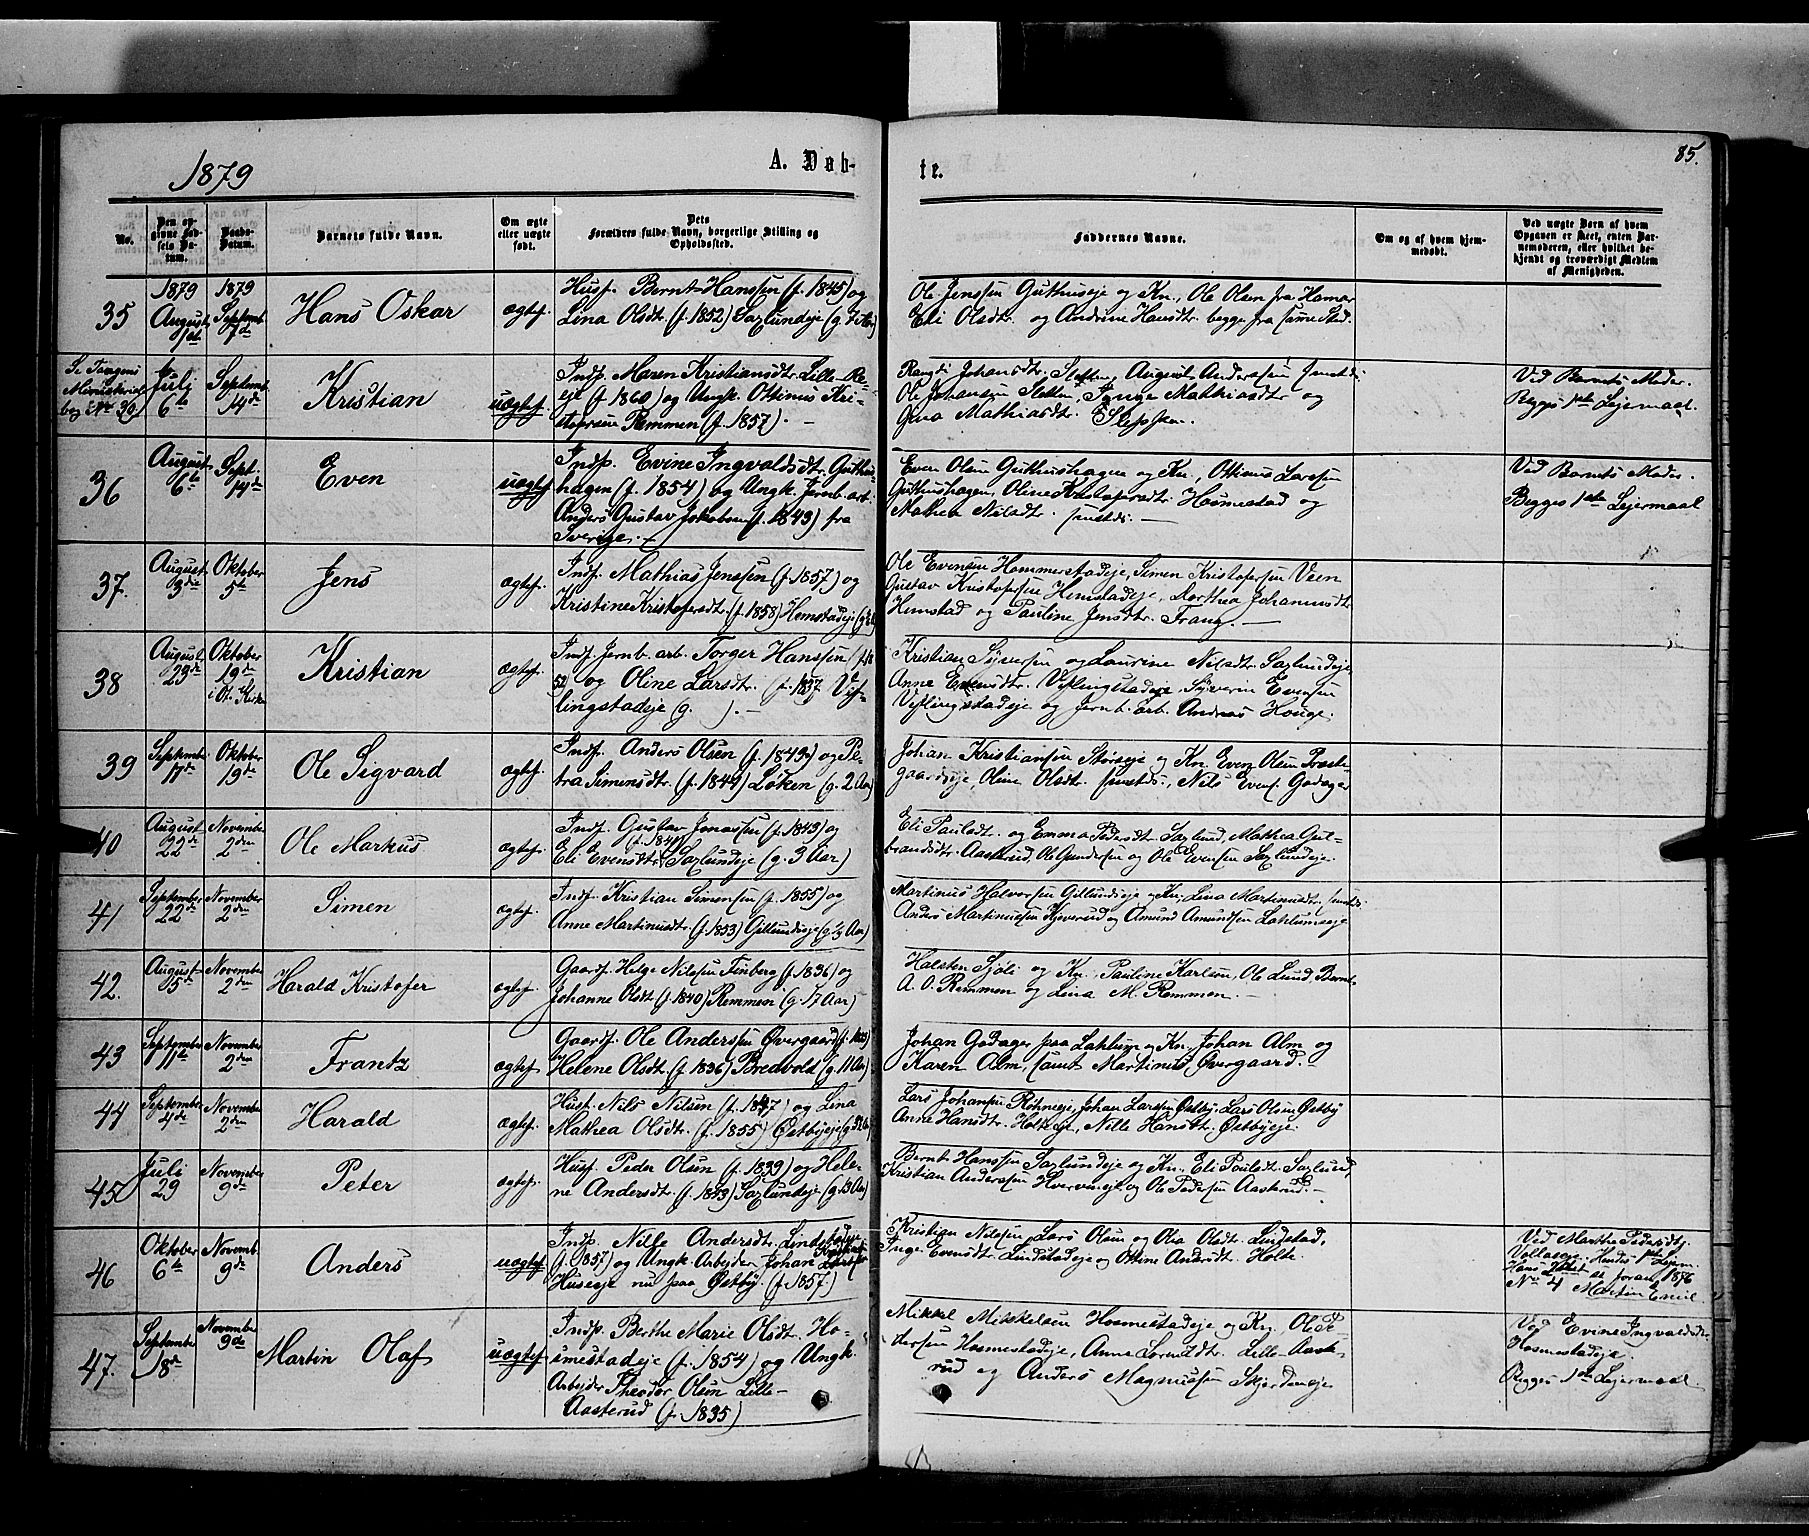 1879
A. Døb-
te.
85.
No.
Den op-
givne Fød-
sels Da-
tum.
Daabs-
Datum.
Barnets fulde Navn.
Om ægte
eller uægte
født.
Dets
Forældres fulde Navn, borgerlige Stilling og
Opholdssted.
Faddernes Navne.
Om og af hvem hjem-
medøbt.
Ved uægte Børn af hvem
Opgaven er skeet, enten Bar-
nemoderen, eller hvilket be-
kjendt og troværdigt Medlem
af Menigheden.
35
1879
August
1879
Septemb.
7de
Hans Oskar
ægtef.
Husf. Bernt Hanssen (f. 1845) og
Lina Olsdt. (f. 1852) Saxlundeje
Ole Jenssen Guthuseje og Kn., Ole Olsen fra Hamar
Eli Olsdtr. og Andrine Hansdtr. begge fra samme Sted.
Se Tangens
Ministerial
bog No 39
Juli
6te
Septemb.
14de
Kristian
uægtef.
Indp. Maren Kristiansdtr. Lille-Re-
eje (f. 1860) og Ungk. Ottinus Kri-
stofersen Remmen (f. 1857). —
Rangdi Johansdtr. Sletten, Andersen smstds.
Ole Johansen Sletten, Inge Mathiasdtr og
Gina Mathiasdt.
Ved Barnets Moder.
Begges 1ste Lejermaal.
36
August
6te
Sept.
14de
Even
uægtef.
Indp. Evine Ingvaldsdt. Guthus-
hagen (f. 1854) og Ungk. Jernb. arb.
Anders Gustav Jakobsen (f. 1843) fra
Sverige. —
Even Olsen Guthushagen og Kn., Ottinus Larsen
Guthushagen, Oline Kristofersdtr. Hosmestad og
Mathea Nilsdtr. smstds. —
Ved Barnets Moder.
Begges 1ste Lejermaal
37.
August
3die
Oktober
5te
Jens
ægtef.
Indp. Mathias Jenssen (f. 1857) og
Kristine Kristofersdtr. (f. 1858) Hemstadeje
Ole Evensen Hommerstadeje, Simen Kristofersen Veen
Gustav Kristofersen Hemstadeje, Dorthea Johannesdtr.
Hemstad og Pauline Jensdtr. Frang. —
38
August
23de
Oktober
19de
i Ot. Kirke
Kristian
ægtef.
Indp. Jernb. arb. Torger Hanssen (f. 18
52) og Oline Larsdtr. (f. 1837 Vif-
lingstadeje (g. ). —
Kristian Syversen og Laurine Nilsdtr. Saxlundeje
Anne Evensdtr. Viflingstadeje, Syverin Evensen
Viflingstadeje og Jernb. arb. Andreas Houge.
39
Septembr
17de
Oktober
19de
Ole Sigvard
ægtef.
Indp. Anders Olsen (f. 1843) og Pe-
tra Simensdt. (f. 1849) Løken (g. 2 Aar)
Johan Kristiansen Storeeje og Kn. Even Olsen Præste-
gaardseje, Oline Olsdt. smstds., Nils Evens. Godager
40
August
22de
November
2den
Ole Markus
ægtef.
Indp. Gustav Jonassen (f. 1843) og
Eli Evensdtr. Saxlundeje (g. 3 Aar)
Eli Paulsdt. og Emma Pedersdt. Saxlund, Mathea Gul-
brandsdt. Aasterud, Ole Gundersen og Ole Evensen Saxlundeje.
41
September
22de
November
2den
Simen
ægtef.
Indp. Kristian Simensen (f. 1855) og
Anne Martinusdt. (f. 1853) Gillundseje
Martinus Halvorsen Gillundseje og Kn., Lina Martinusdt. smstds.
Anders Martinussen Kjæverud og Amund Amundsen Lahlumseje
42.
August
5te
November
2den
Harald Kristofer
ægtef.
Gaardf. Helge Nilssen Finberg (f. 1836) og
Johanne Olsdt. (f. 1840) Remmen (g. 17 Aar)
Halsten Sjøli og Kn., Pauline Karlsen, Ole Lund, Bernt
A. O. Remmen og Lina M. Remmen. —
43
September
11te
November
2den
Frantz
ægtef.
Gaardf. Ole Anderssen Øvergaard
Helene Olsdt. (f. 1836) Bredvold (g. 11 Aar)
Johan Godager paa Lahlum og Kn., Johan Alm og
Karen Alm, samt Martinus Øvergaard.
44
September
4de
November
2den
Harald
ægtef.
Husf. Nils Nilsen (f. 1847) og Lina
Mathea Olsdtr. (f. 1855) Østbyeje
Lars Johansen Røhneeje, Johan Larsen Østby, Lars Olsen Østby
Anne Hansdtr. Holteeje, Nille Hansdtr. Østbyeje.
45
Juli
29
November
9de
Peter
ægtef.
Husf. Peder Olsen (f. 1839) og Hele-
ne Andersdt. (f. 1843) Saxlundeje (g. 13 Aar)
Bernt Hanssen Saxlundeje og Kn., Eli Paulsdt. Saxlund,
Kristian Anderssen Hverveneje og Ole Pedersen Aasterud. —
46
Oktober
6te
Novemb.
9de
Anders
uægtef.
Indp. Nille Andersdt. Lindstadeje
(f. 1857) og Ungk. Arbejder Johan
Huseeje nu paa Østby. (f. 1857.)
Kristian Nilssen, Lars Olsen og Olia Olsdt. Lindstad,
Inge Evensdt. Lindstadeje og Ottine Andersdt. Holte.
Ved Marthe Pedersdt.
Hendes 1ste Lejerm.
se foran 1876
No 4 Martin Emil.
47.
Septembr
18de
Novembr
9de
Martin Olaf
uægtef.
Indp. Berthe Marie Olsdt. Ho-
smestadeje (f. 1854) og Ungk.
Arbejder Theodor Olsen Lille-
Aasterud (f. 1835)
Mikkel Mikkelsen Hosmestadeje og Kn., Ole Pe-
dersen Hosmestadeje, Anne Lille-Aaste-
rud og Anders Magnussen Skjerdeneje
Ved Evine Ingvaldsdtr.
Hosmestadeje.
Begges 1ste Lejermaal.